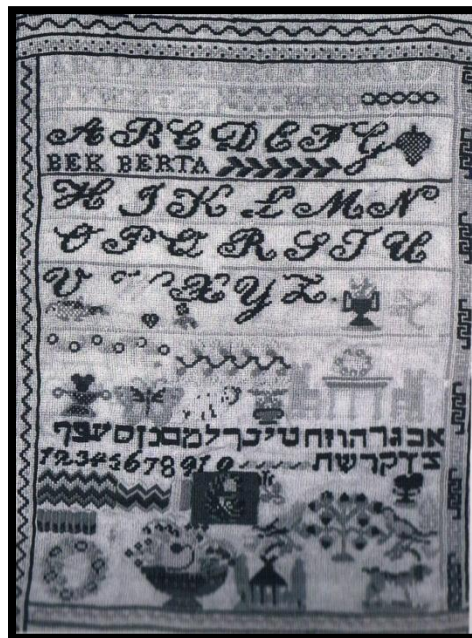 A B C D E F G
BEK BERTA
H I K L M N
O P Q R S T U
V X Y Z
אבגדהוזחטיכךלמםנןסעפף
צץקרשת 12345678910